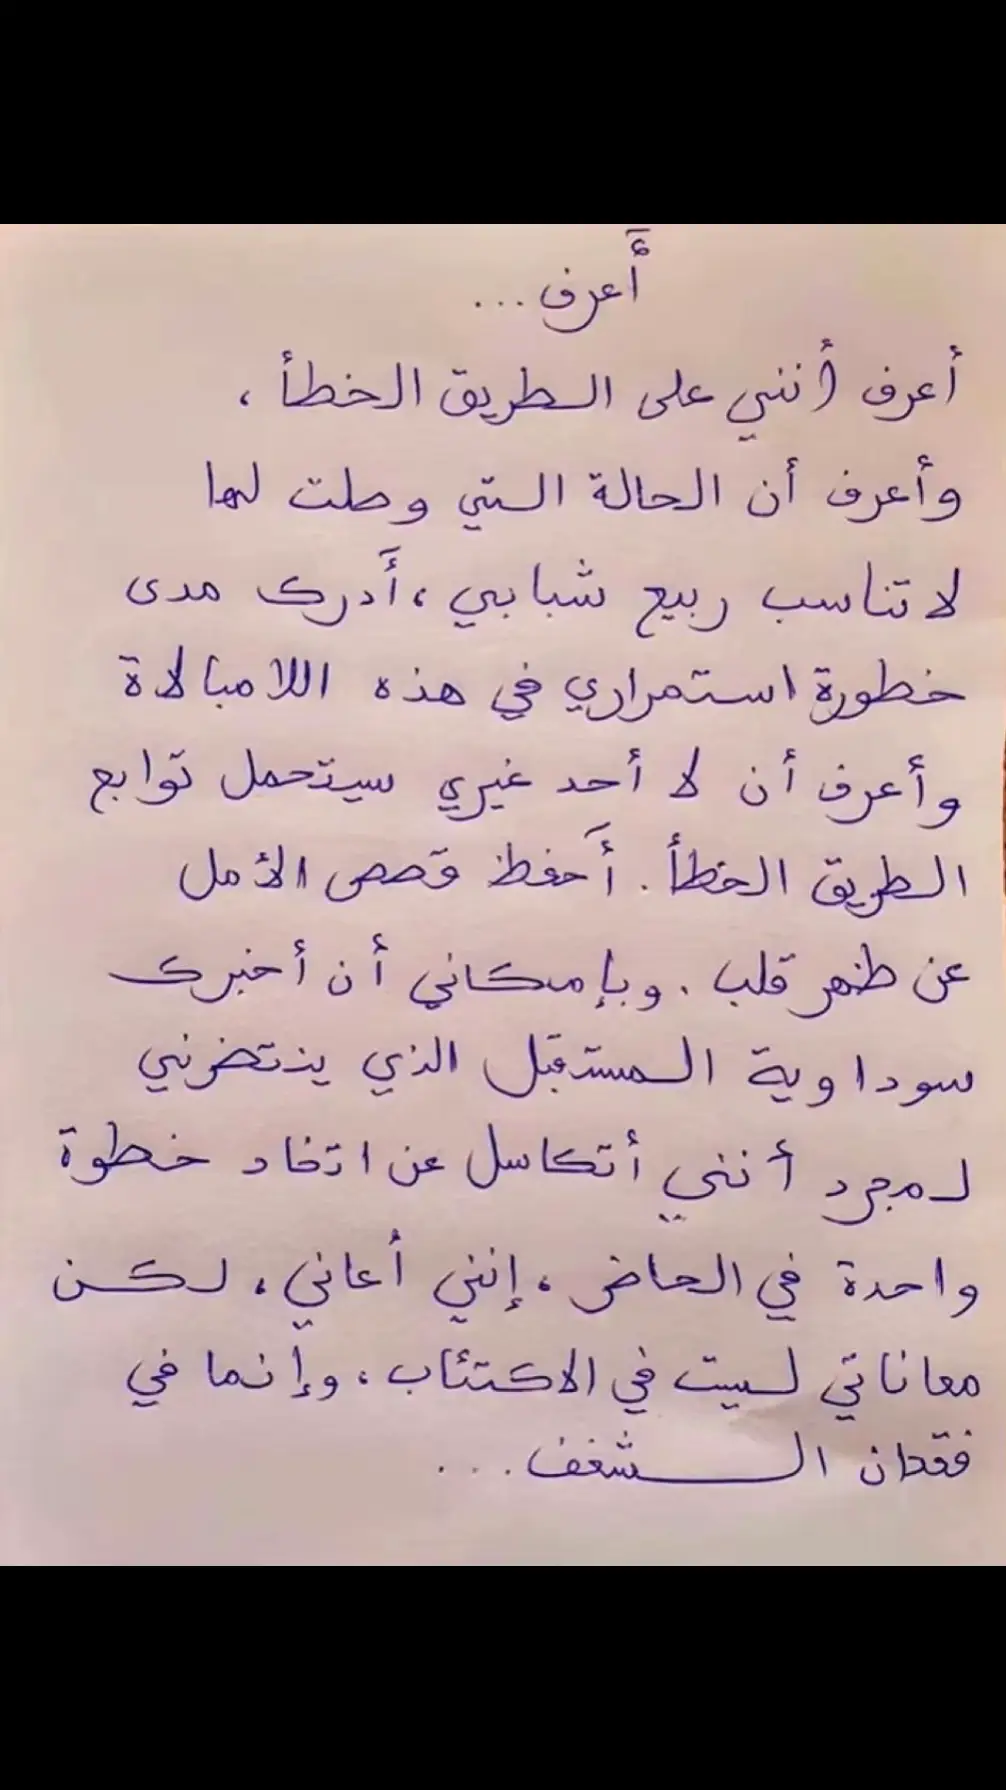 أَعرف...
أعرف أنني على الطريق الخطأ،
وأعرف أن الحالة التي وصلت لها
لا تناسب ربيع شبابي، أَدرك مدى
خطورة استمراري في هذه اللامبالاة
وأعرف أن لا أحد غيري سيتحمل توابع
الطريق الخطأ. أَحفظ قصص الأمل
عن ظهر قلب. وبإمكاني أن أخبرك
سوداوية المستقبل الذي ينتضرني
لمجرد أنني أتكاسل عن اتخاد خطوة
واحدة في الحاضر، إنني أعاني، لكن
معاناتي ليست في الاكتئاب، وإنما في
فقدان الشغف...